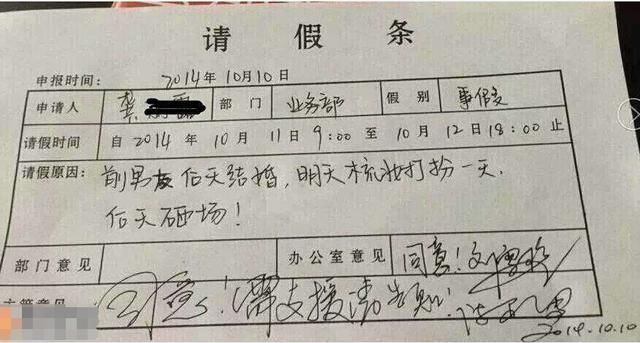 请假条
申报时间： 2014年10月10日
申请人 龚 露 部门 业务部 假别 事假
请假时间 自2014年10月11日9:00至10月12日18:00止
请假原因： 前男友后天结婚，明天梳妆打扮一天，
后天砸场！
部门意见 办公室意见 同意！
主管意见 同意！需支援请告知！
2014.10.10